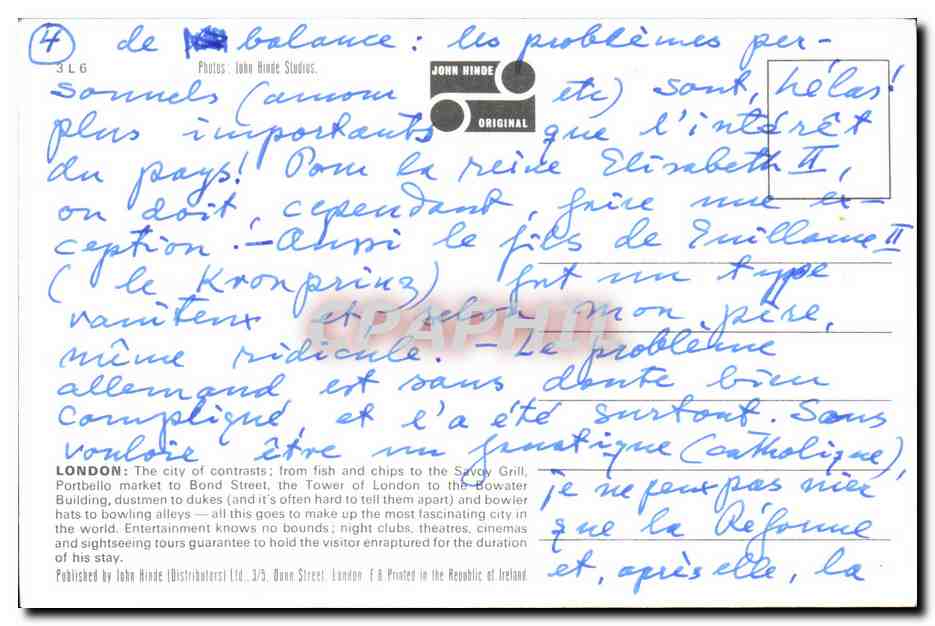 4 de balance : les problèmes per-
3L6
Photos: John Hinde Studios.
JOHN HINDE
ORIGINAL
sonnels (amour etc) sont, hélas!
plus importants que l'intérêt
du pays! Pour la reine Elisabeth II,
on doit, cependant, faire une ex-
ception. - Aussi le fils de Guillaume II
(le Kronprinz) fut un type
vaniteux et, selon mon père,
même ridicule. - Le problème
allemand est sans doute bien
compliqué, et l'a été surtout. Sans
vouloir être un fanatique (catholique),
je ne peux pas nier
que la Réforme
et, après elle, la
LONDON: The city of contrasts; from fish and chips to the Savoy Grill,
Portbello market to Bond Street, the Tower of London to the Bowater
Building, dustmen to dukes (and it's often hard to tell them apart) and bowler
hats to bowling alleys — all this goes to make up the most fascinating city in
the world. Entertainment knows no bounds; night clubs, theatres, cinemas
and sightseeing tours guarantee to hold the visitor enraptured for the duration
of his stay.
Published by John Hinde (Distributors) Ltd., 3/5, Dunn Street, London, E 8 Printed in the Republic of Ireland
CPAPHIL